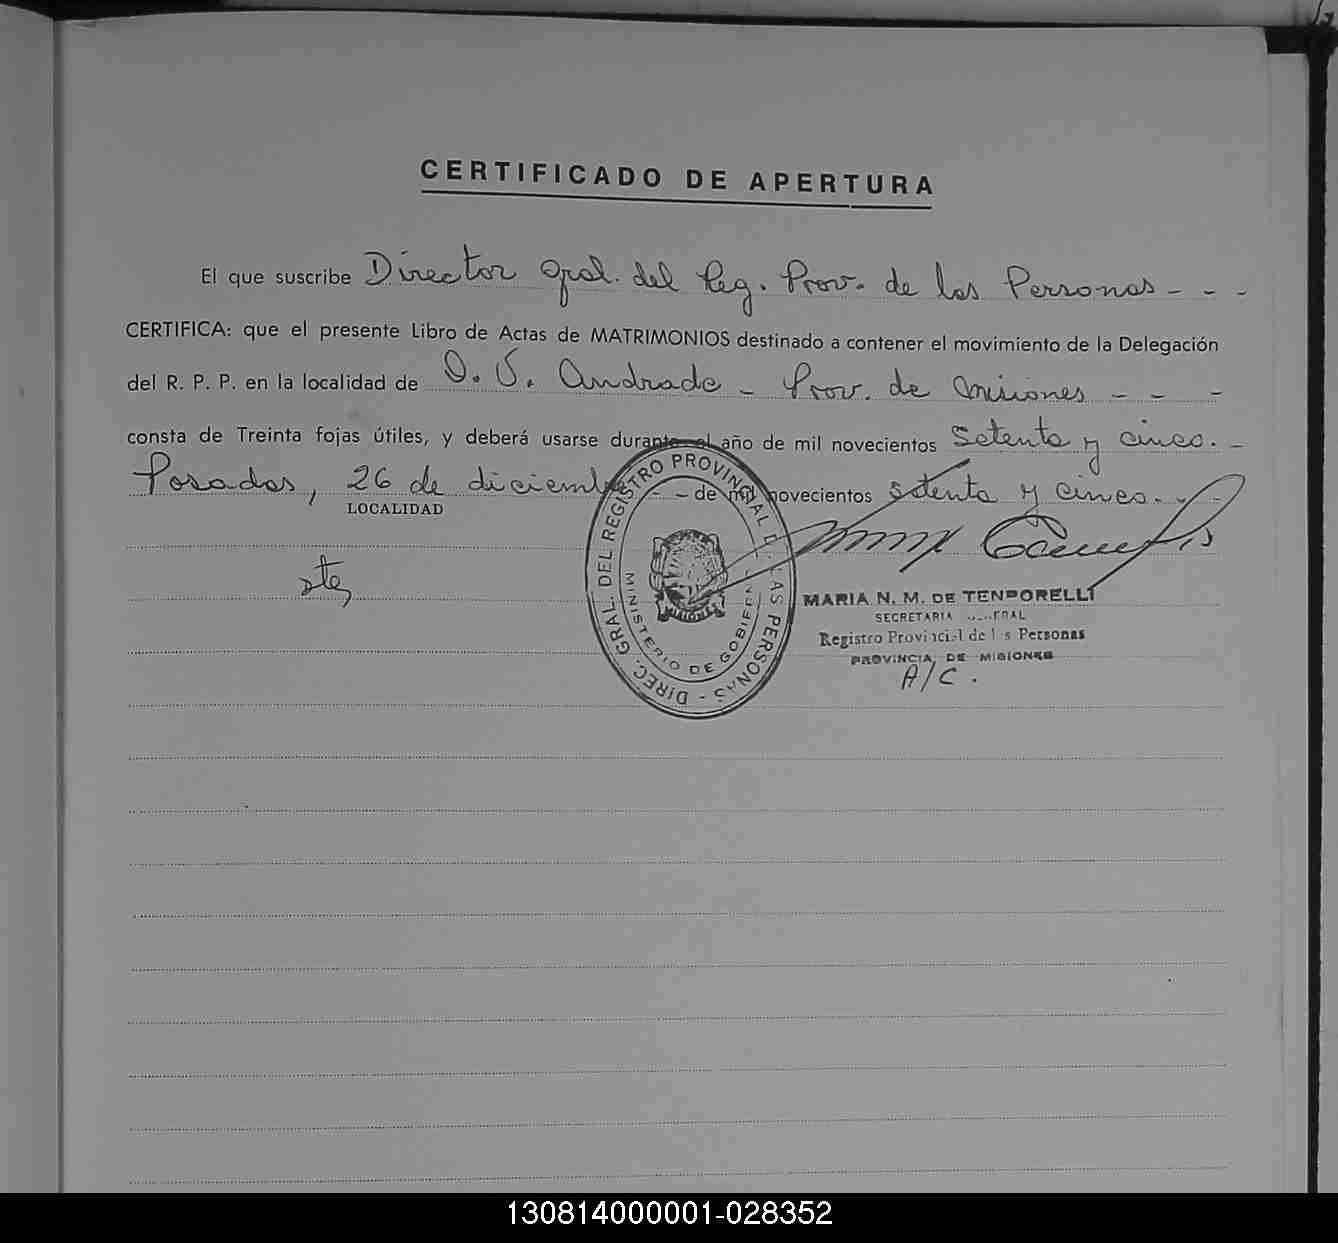 CERTIFICADO DE APERTURA
El que suscribe Director Gral. del Reg. Prov. de las Personas - - -
CERTIFICA: que el presente Libro de Actas de MATRIMONIOS destinado a contener el movimiento de la Delegación
del R. P. P. en la localidad de O. V. Andrade - Prov. de Misiones - - -
consta de Treinta fojas útiles, y deberá usarse durante el año de mil novecientos Setenta y cinco. -
Posadas, 26 de diciembre - - de mil novecientos setenta y cinco. - -
LOCALIDAD
DIREC. GRAL. DEL REGISTRO PROVINCIAL DE LAS PERSONAS -
MINISTERIO DE GOBIERNO
MISIONES
MARIA N. M. DE TEMPORELLI
SECRETARIA GENERAL
Registro Provincial de las Personas
PROVINCIA DE MISIONES
A/C.
130814000001-028352